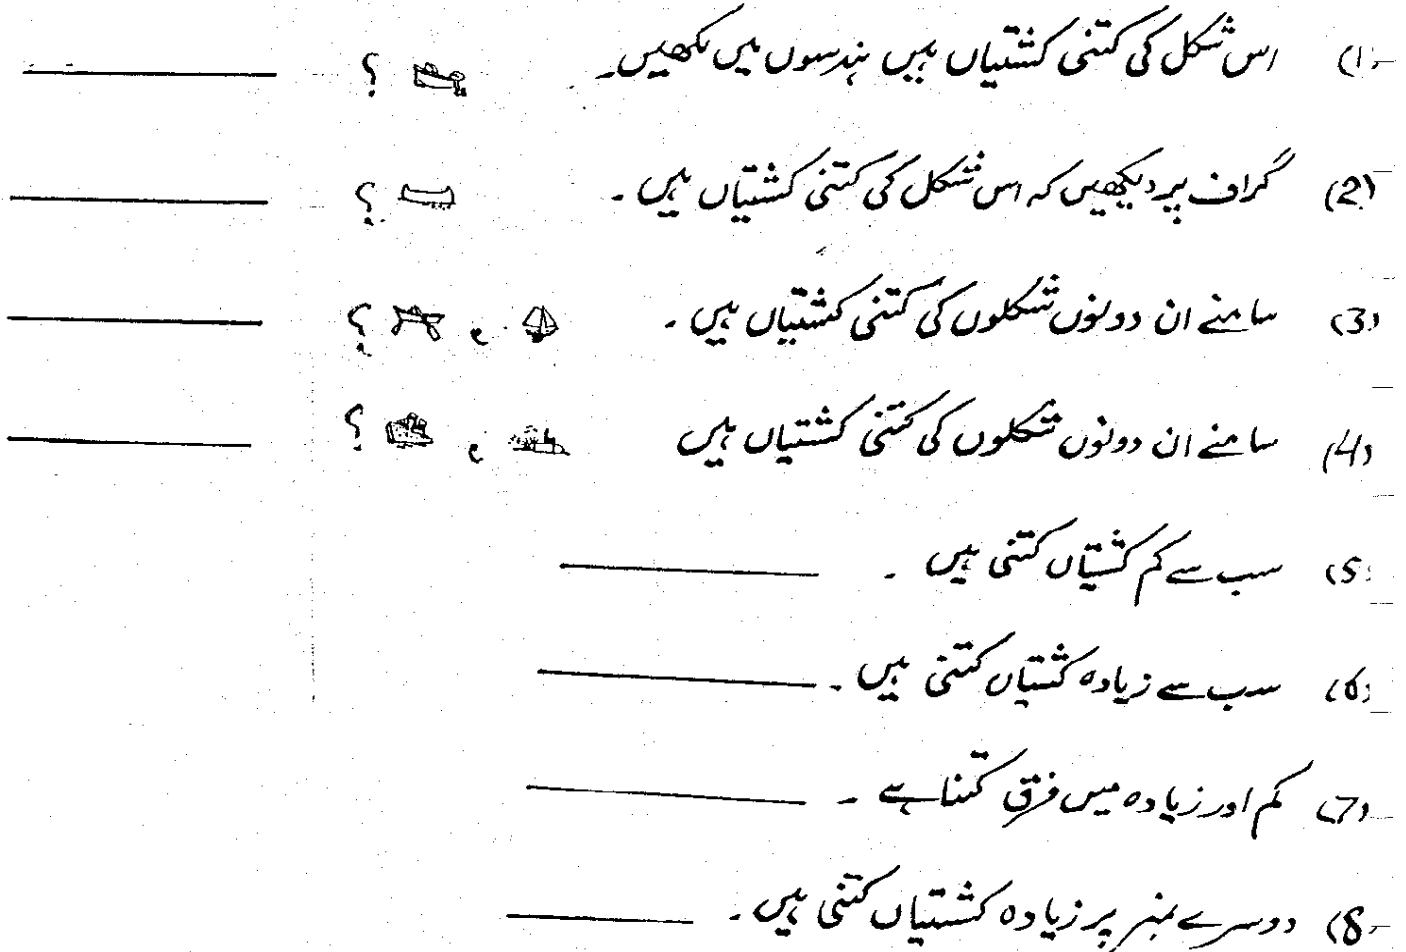 (1) اس شکل کی کتنی کشتیاں ہیں ہندسوں میں لکھیں۔ ؟
(2) گراف پر دیکھیں کہ اس شکل کی کتنی کشتیاں ہیں ۔ ؟
(3) سامنے ان دونوں شکلوں کی کتنی کشتیاں ہیں ۔ و ؟
(4) سامنے ان دونوں شکلوں کی کتنی کشتیاں ہیں و ؟
(5) سب سے کم کشتیاں کتنی ہیں ۔
(6) سب سے زیادہ کشتیاں کتنی ہیں ۔
(7) کم اور زیادہ میں فرق کتنا ہے ۔
(8) دوسرے نمبر پر زیادہ کشتیاں کتنی ہیں ۔